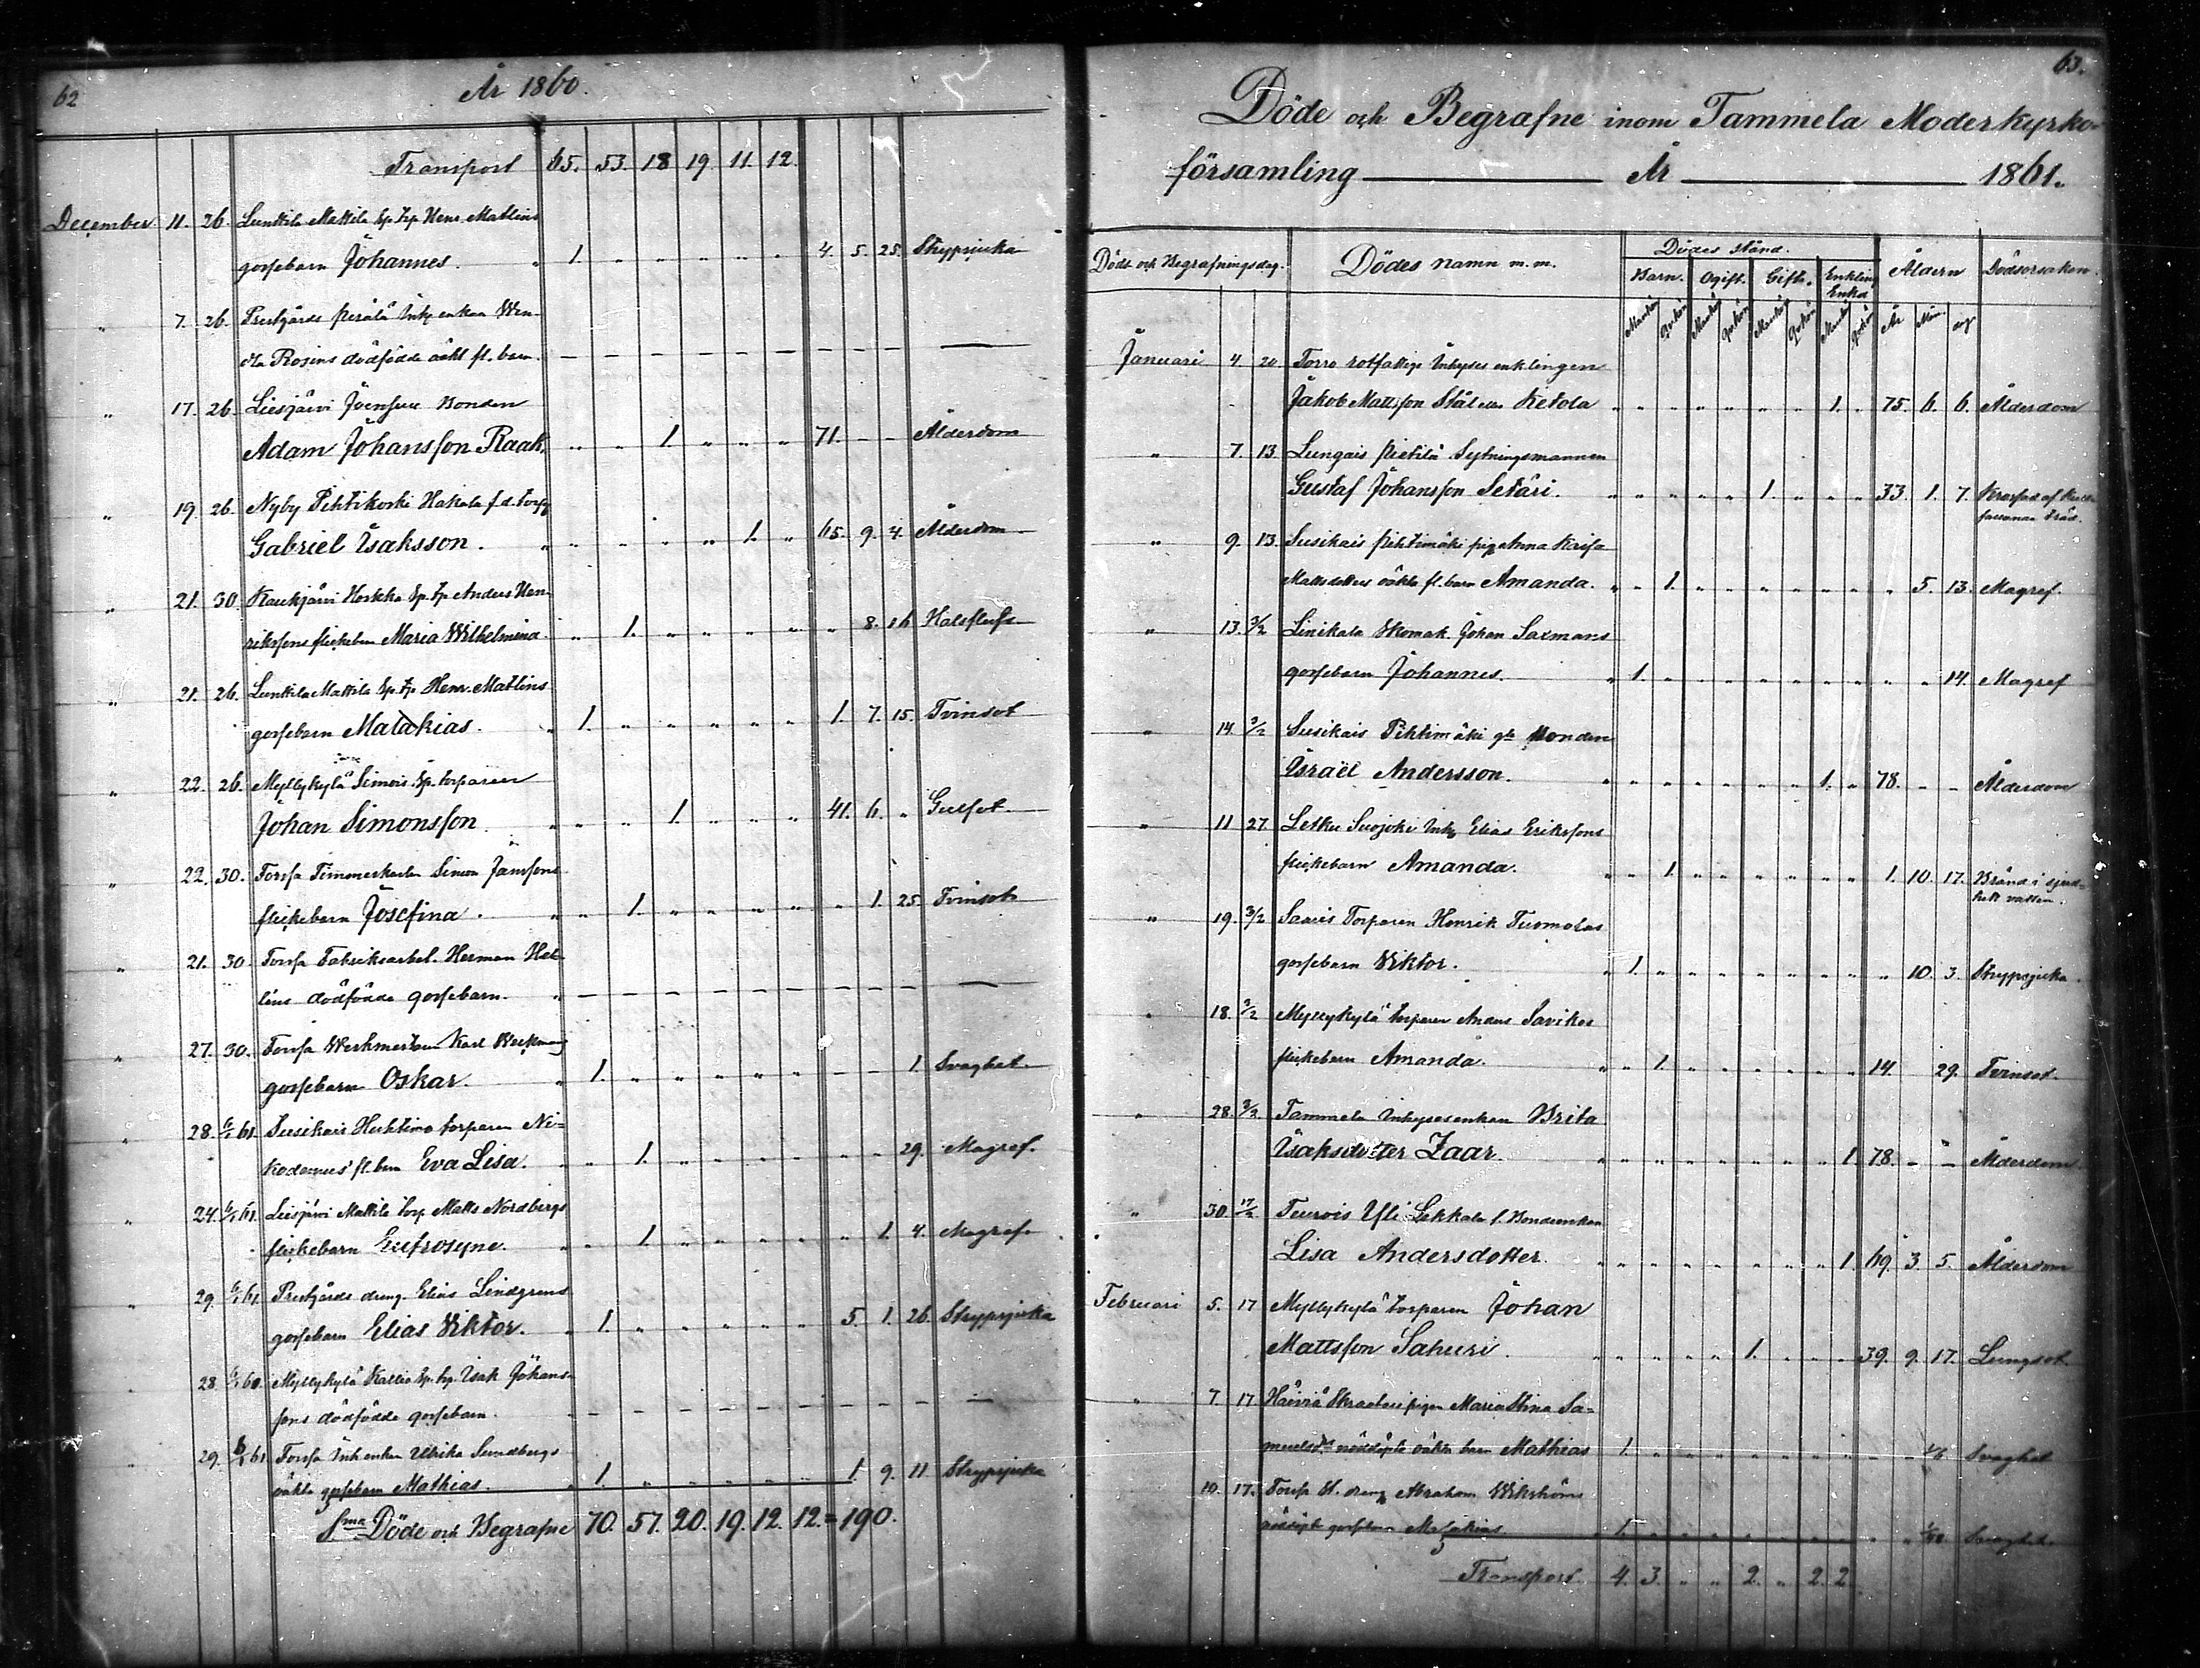 62
År 1860.
Transport 65. 53. 18 19 11. 12.
December 11. 26. Lunkila Mattila Sp. Tp Henr. Matlins
gossebarn Johannes. 1. 4. 5. 25. Strypsjuka
" 7. 26. Prestgårds Perälä Inh enkan Wen-
dla Rosins dödfödda oäkt fl. barn.
" 17. 26. Liesjärvi Jvensuu Bonden
Adam Johansson Raak. 1. 71. Ålderdom
" 19. 26. Nyby Pihtikoski Hakala f.d. torp
Gabriel Isaksson. 1. 65. 9. 4. Ålderdom
" 21. 30. Kaukjärvi Horkka Sp. Tp Anders Hen-
rikssons flickebn Maria Wilhelmina. 1. 8. 16 Halsflus
" 21. 26. Lunkila Mattila Sp. Tp Henr. Matlins
gossebarn Malakias. 1. 1. 7. 15. Tvinsot
" 22. 26. Myllykylä Simois Sp. torparen
Johan Simonsson. 1. 41. 6. " Gulsot
" 22. 30. Forssa Timmerkarlen Simon Janssons
flickebarn Josefina. 1. 1. 25. Tvinsot
" 21. 30. Forssa Fabriksarbet. Herman Hel-
lens dödfödda gossebarn.
" 27. 30. Forssa Werkmest Karl Weckmans
gossebarn Oskar. 1. 1 Svaghet
" 28. 6/1 61. Susikais Huhtimo torparen Ni=
kodemus' fl. barn Eva Lisa. 1. 29. Magref.
" 24. 6/1 61. Liesjärvi Mattila torp Matts Nordbergs
flickebarn Eufrosyne. 1. 1. 4. Magref.
" 29. 6/1 61. Prestgårds dreng. Elias Lindgrens
gossebarn Elias Viktor. 1. 5. 1. 26. Strypsjuka
28. 6/1 60. Myllykylä Kallio Sp. tp. Isak Johans-
sons dödfödda gossebarn.
29. 6/1 61 Forssa Inh enkan Ulrika Sundbergs
oäkta gossebarn Mathias. 1. 1. 9. 11 Strypsjuka
Sma Döde och Begrafne 70. 57. 20. 19. 12. 12. = 190.
63.
Döde och Begrafne inom Tammela Moderkyrko-
församling År 1861.
Död och Begrafningsdag. Dödes namn m. m. Dödes stånd. Åldern Dödsorsaken.
Barn. Ogift. Gifte. Enkling Enka
Mankön Qvkön Mankön Qvkön Mankön Qvkön Mankön Qvkön År Mån. dag
Januari 4. 20. Torro rotfattige Inhyses enklingen
Jakob Mattsson Stål Ketola 1. 75. 6. 6. Ålderdom
" 7. 13. Lungais Pietilä Sytningsmannen
Gustaf Johansson Setäri. 1. 33. 1. 7. Krossad af
fallande träd.
" 9. 13. Susikais Pihtimäki pig Anna Kajsa
Mattsdotters oäkta fl. barn Amanda. 1. 5. 13. Magref.
" 13. 3/2 Linikala Skomak. Johan Saxmans
gossebarn Johannes. 1. 14. Magref
" 14. 3/2 Susikais Pihtimäki gla Bonden
Israel Andersson. 1. 78. Ålderdom
" 11 27. Letku Suojoki Inh Elias Erikssons
flickebarn Amanda. 1. 1. 10. 17. Bränd i sjud-
hett vatten.
" 19. 3/2 Saaris Torparen Henrik Tuomolas
gossebarn Viktor. 1. 10. 3. Strypsjuka.
" 18. 3/2 Myllykylä torparen Anders Savikos
flickebarn Amanda. 1. 14. 29. Tvinsot.
" 28. 3/2 Tammela Inhysesenkan Brita
Isaksdotter Zaar. 1. 78. Ålderdom.
" 30. 17/2 Teuvois Yli Sekkala f. Bondenkan
Lisa Andersdotter. 1 69. 3. 5. Ålderdom
Februari 5. 17 Myllykylä torparen Johan
Mattsson Sahuri. 1. 39. 9. 17. Lungsot
" 7. 17 Häiviä Skraatari pigan Maria Stina Sa=
muelsdtr nöddöpte oäkta barn Mathias 1. 1/6 Svaghet
10. 17. Forssa dreng Abraham Wikströms
nöddöpte gossebarn 1. Svaghet.
Transport. 4. 3. 2. 2. 2.